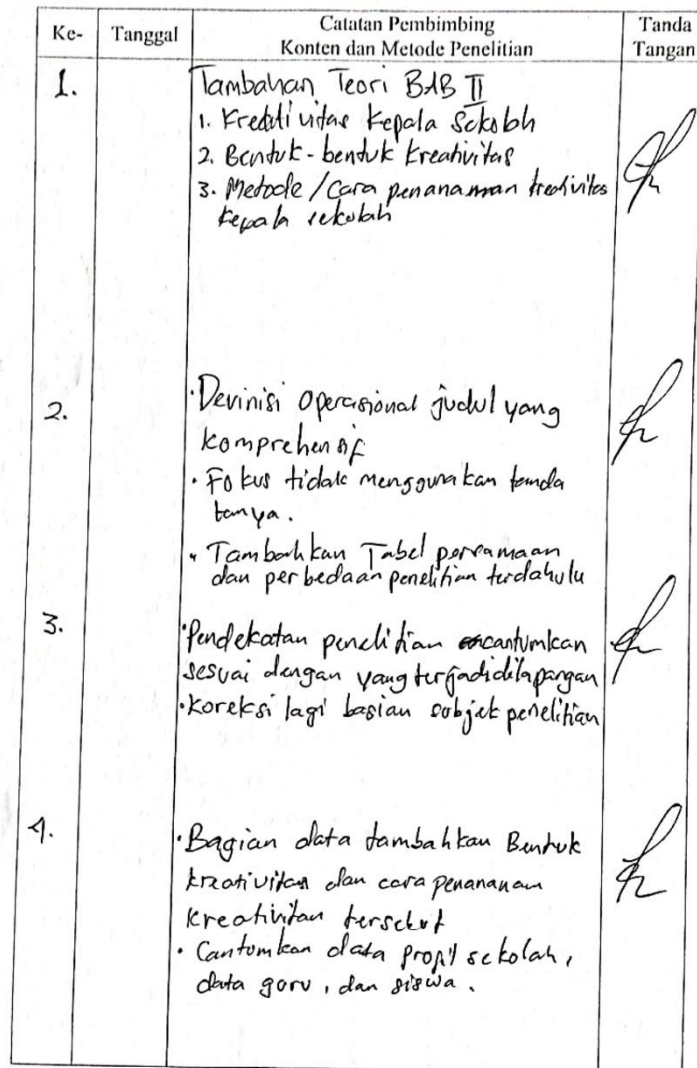 Ke- Tanggal Catatan Pembimbing Tanda
Konten dan Metode Penelitian Tangan
1. Tambahan Teori BAB II
1. Kreativitas Kepala Sekolah
2. Bentuk-bentuk Kreativitas
3. Metode/Cara penanaman kreativitas
kepala sekolah
2. · Devinisi Operasional judul yang
komprehensif
· Fokus tidak menggunakan tanda
tanya.
· Tambahkan Tabel persamaan
dan perbedaan penelitian terdahulu
3. · Pendekatan penelitian cantumkan
sesuai dengan yang terjadi dilapangan
· Koreksi lagi bagian subjek penelitian
4. · Bagian data tambahkan Bentuk
kreativitas dan cara penanaman
kreativitas tersebut
· Cantumkan data profil sekolah,
data guru, dan siswa.